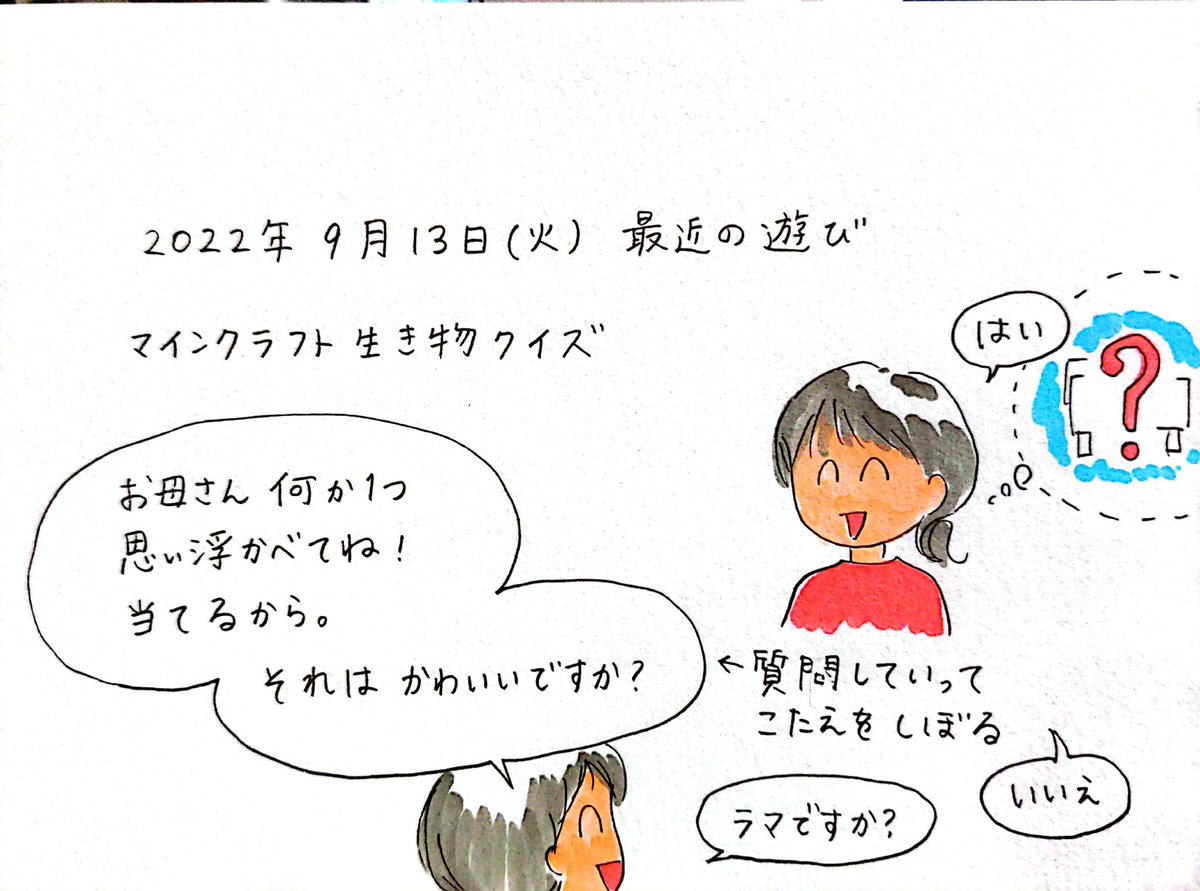 2022年 9月13日(火) 最近の遊び
マインクラフト 生き物クイズ
はい
?
お母さん 何か1つ
思い浮かべてね!
当てるから。
それは かわいいですか?
←質問していって
こたえを しぼる
いいえ
ラマですか?